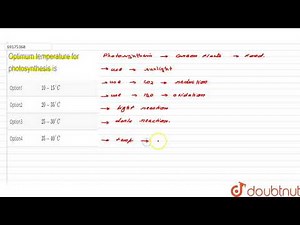 Optimum temperature for
photosynthesis is
Option1 10 - 15° C
Option2 20 - 35° C
Option3 25 - 30° C
Option4 35 - 40° C
Photosynthesis → Green Plants → Food.
→ use → sunlight
→ use → CO2 → reduction
→ use → H2O → oxidation
→ light reaction
→ dark reaction.
→ temp →
doubtnut